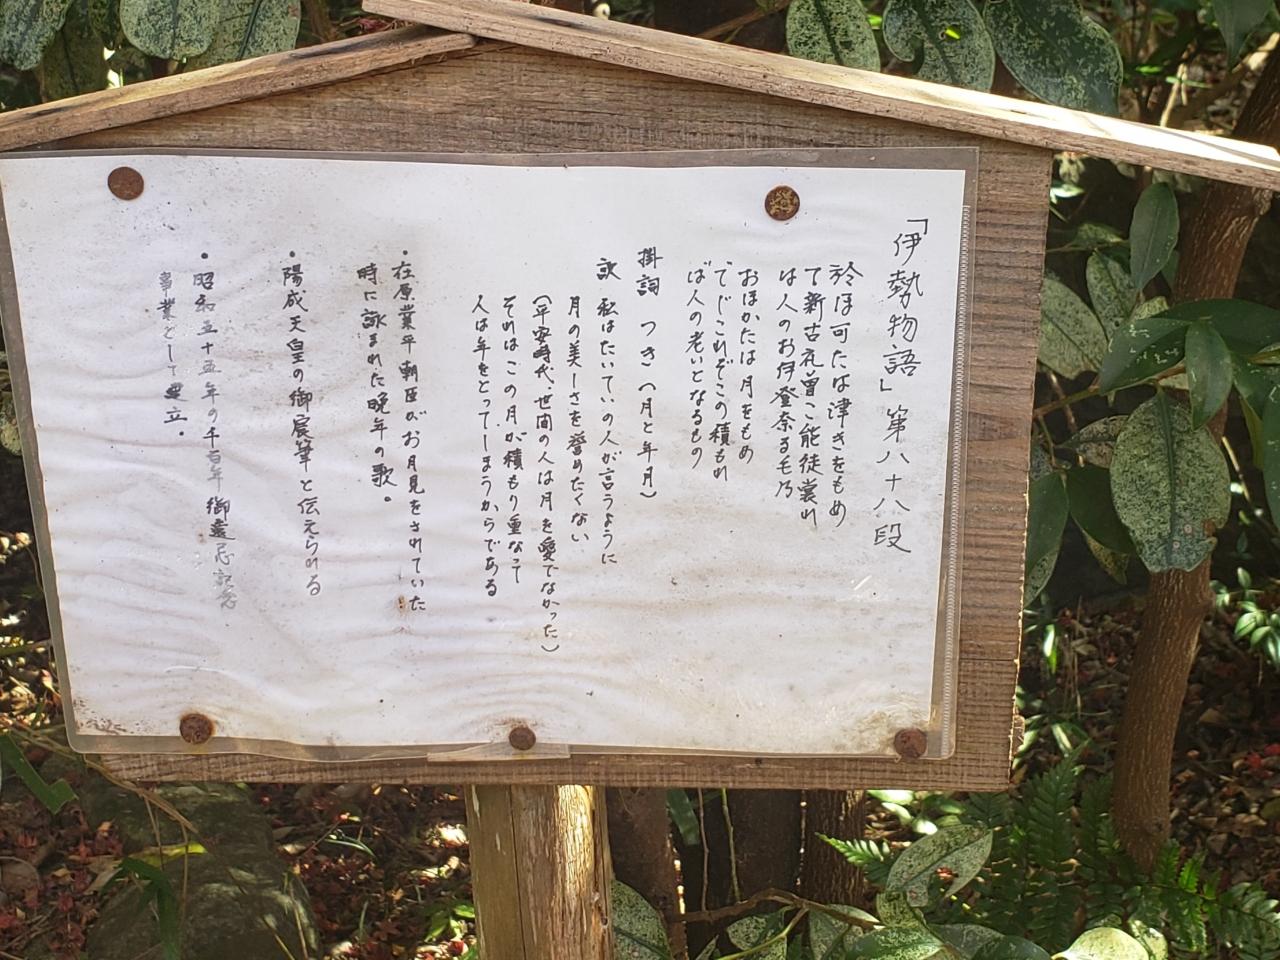 「伊勢物語」第八十八段
於ほ可たは津きをもめ
て新古礼曽こ能徒裳れ
は人のお伊登奈る毛乃
おほかたは月をもめ
でじこれぞこの積もれ
ば人の老いとなるもの
掛詞 つき(月と年月)
訳 私はたいていの人が言うように
月の美しさを誉めたくない
(平安時代、世間の人は月を愛でなかった)
それはこの月が積もり重なって
人は年をとってしまうからである
・在原業平朝臣がお月見をされていた
時に詠まれた晩年の歌。
・陽成天皇の御宸筆と伝えられる
・昭和五十五年の千百年御遠忌記念
事業として建立。